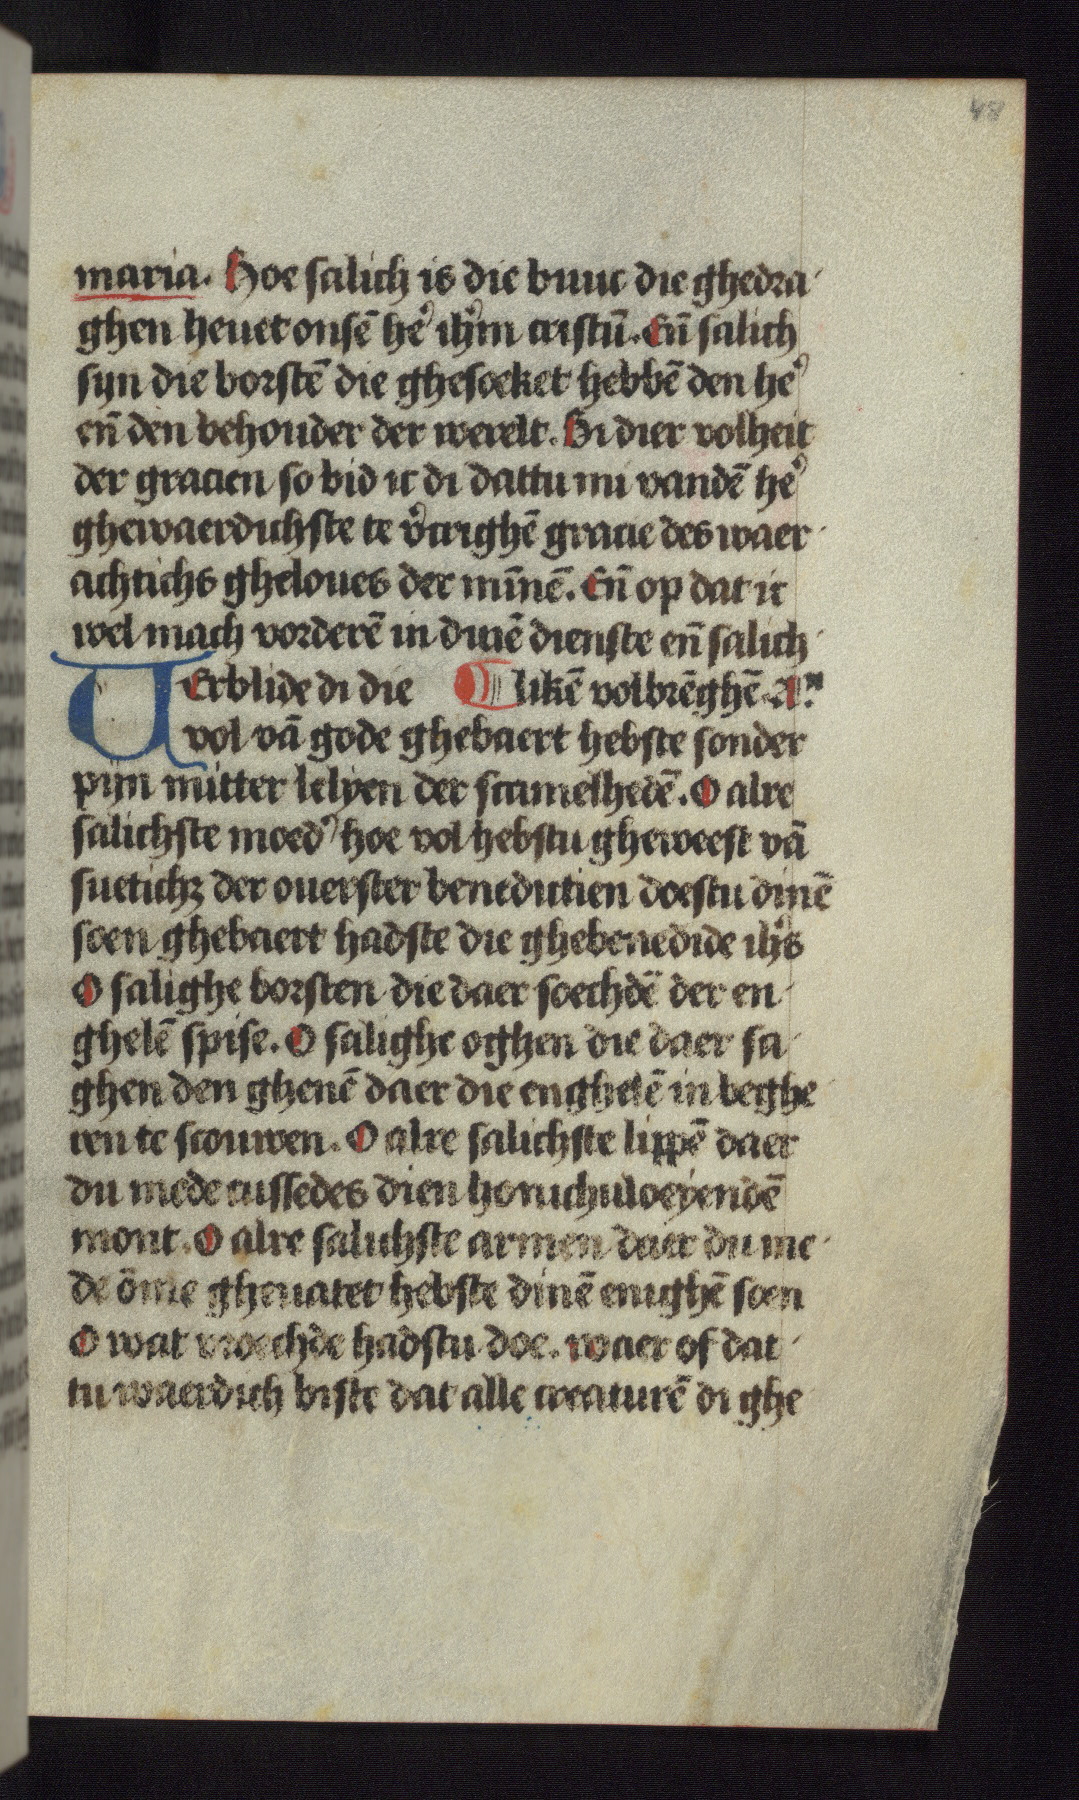 48
maria. Hoe salich is die buuc die ghedra
ghen heuet onsē he᷒ ih᷒m cristū. Eñ salich
sijn die borstē die ghesoeket hebbē den he᷒
eñ den behouder der werelt. Bi dier volheit
der gracien so bid ic di dattu mi vandē he᷒
ghewaerdichste te v᷒crighē gracie des waer
achtichs gheloues der mīnē. Eñ op dat ic
wel mach vorderē in dinē dienste eñ salich
VErblide di die ¶ likē volbrēghē. A.
vol vā gode ghebaert hebste sonder
pijn mitter lelyen der scamelhedē. O alre
salichste moed᷒ hoe vol hebstu gheweest vā
suetichz der ouerster benedictien doestu dinē
soen ghebaert hadste die ghebenedide ih᷒s
O salighe borsten die daer soechdē der en
ghelē spise. O salighe oghen die daer sa
ghen den ghenē daer die enghelē in beghe
ren te scouwen. O alre salichste lippē daer
du mede cussedes dien honichuloeyendē
mont. O alre salichste armen daer du me
de ōme gheuatet hebste dinē enighē soen
O wat vroechde hadstu doe. waer of dat
tu waerdich biste dat alle creaturē di ghe